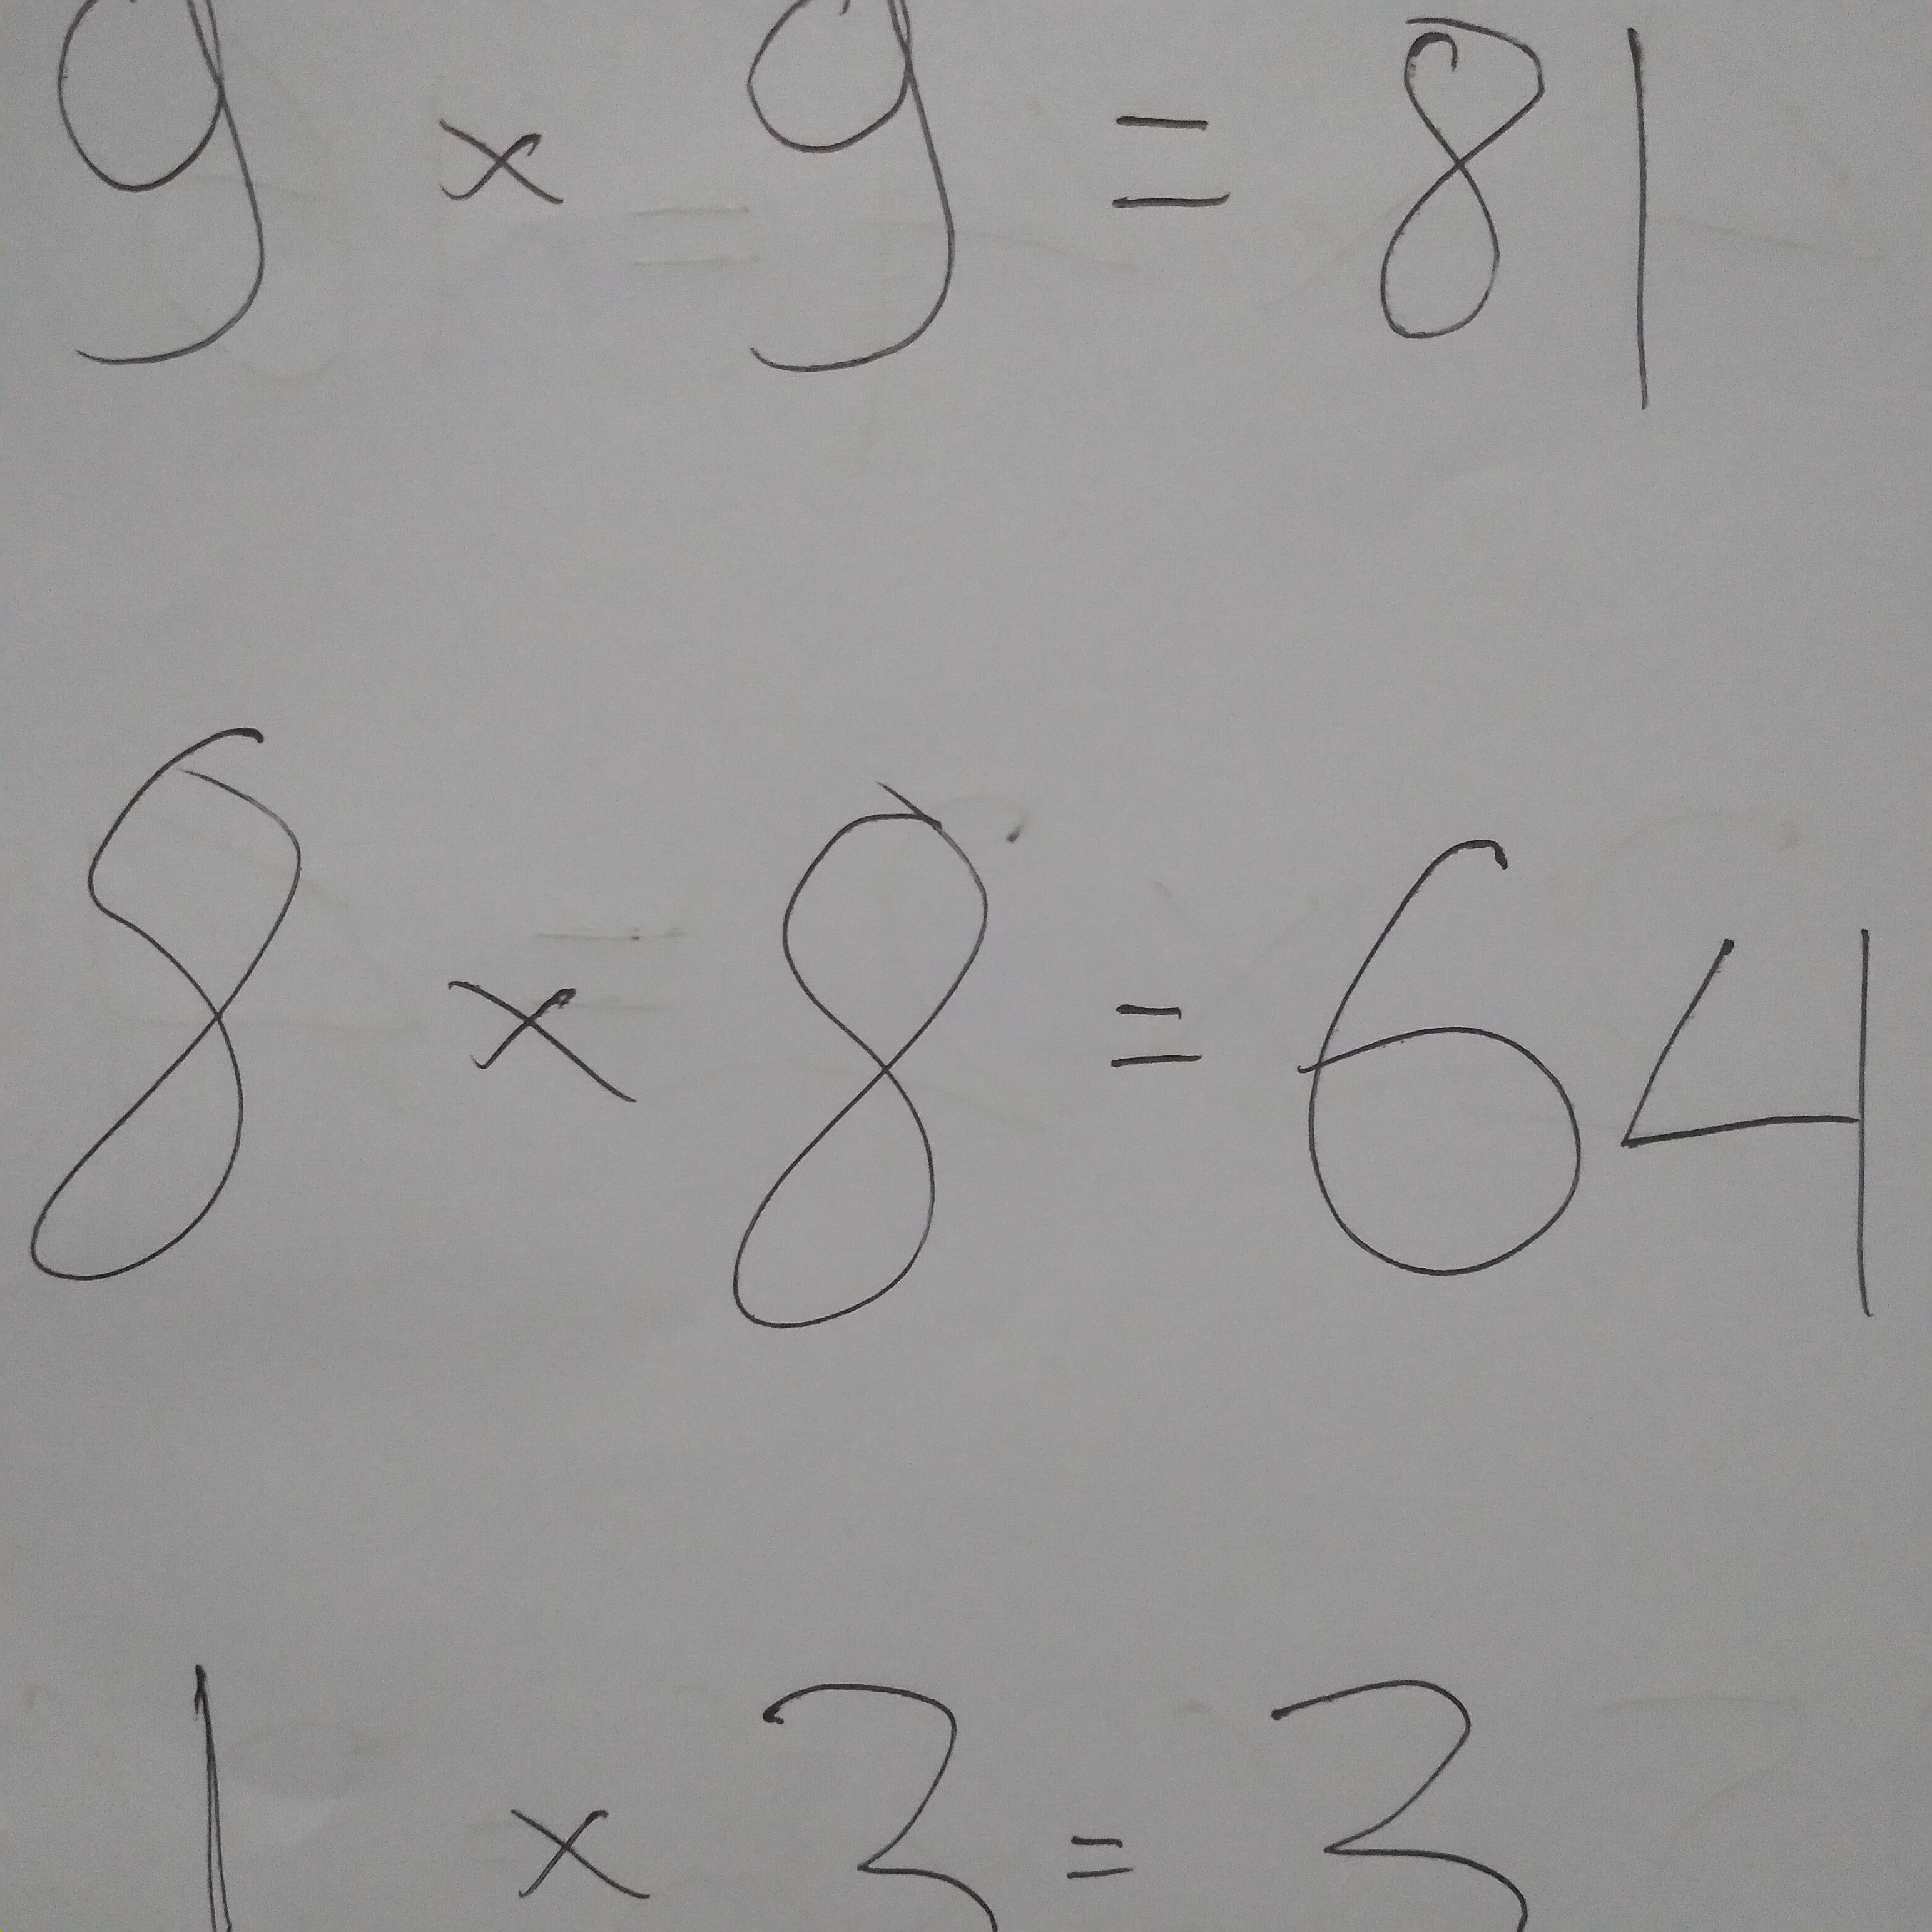 9 × 9 = 81
8 × 8 = 64
1 × 3 = 3